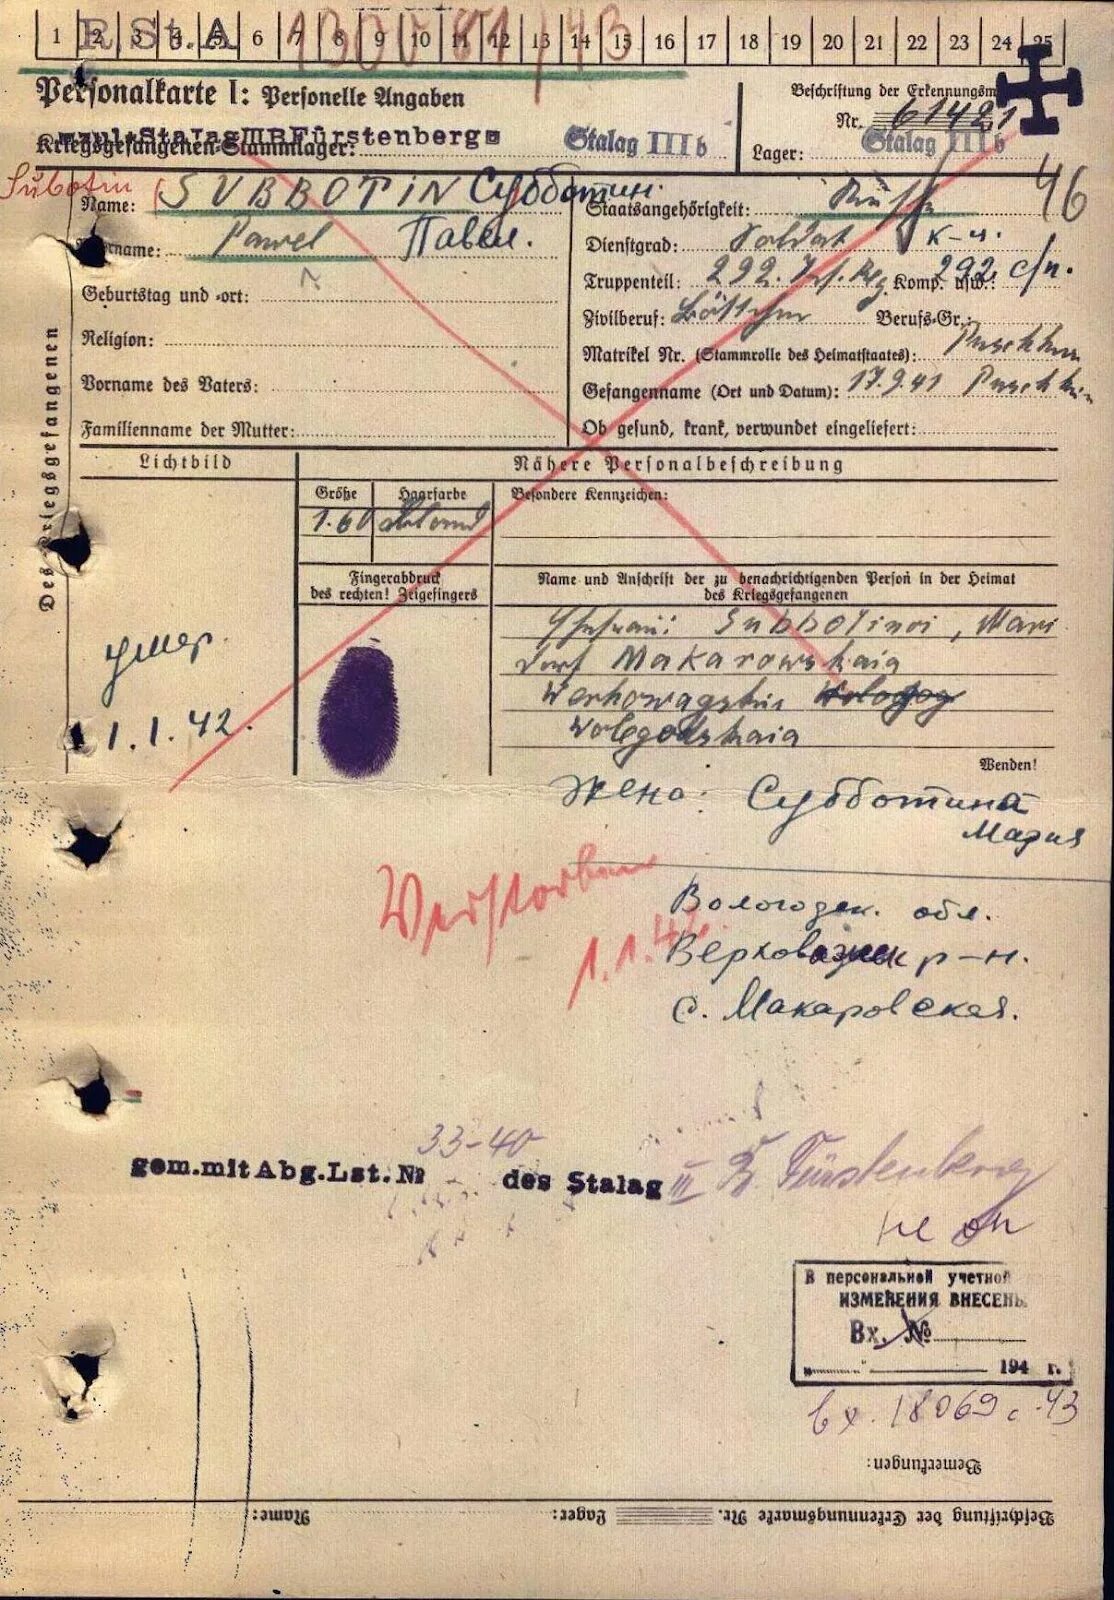 1 2 3 4 5 6 7 8 9 10 11 12 13 14 15 16 17 18 19 20 21 22 23 24 25
R.St.A
Personalkarte I: Personelle Angaben
Beschriftung der Erkennungsm
Nr. 61421
Kriegsgefangenen-Stammlager:
Stalag III B Fürstenberg
Stalag III b
Lager: Stalag III b
46
Subotin
Name: SUBBOTIN Субботин.
Staatsangehörigkeit: Russe
Vorname: Pawel Павел.
Dienstgrad: Soldat к-ц.
Truppenteil: 292. Inf. Reg Komp. usw.: 292 с/п.
Geburtstag und -ort:
Zivilberuf: Böttcher Berufs-Gr.:
Religion:
Matrikel Nr. (Stammrolle des Heimatstaates): Puschkin
Vorname des Vaters:
Gefangenname (Ort und Datum): 17.9.41 Puschkin
Familienname der Mutter:
Ob gesund, krank, verwundet eingeliefert:
Des Kriegsgefangenen
Lichtbild
Nähere Personalbeschreibung
Größe Haarfarbe Besondere Kennzeichen:
1.60 blond
Fingerabdruck
des rechten! Zeigefingers
Name und Anschrift der zu benachrichtigenden Person in der Heimat
des Kriegsgefangenen
Ehefrau: Subbotinoi, Mari
Dorf Makarowskaia
Werhowagskii
Wologodskaia
умер.
1.1.42.
Wenden!
Жена: Субботина
Мария
Verstorben
1.1.42.
Вологодск. обл.
Верховажск р-н.
д. Макаровская.
33-40
gem.mit Abg.Lst.№ des Stalag III B. Fürstenberg
не оп
В персональной учетной
ИЗМЕНЕНИЯ ВНЕСЕНЫ
Вх. №
194 г.
вх. 18069с-43
Bemerkungen:
Beschriftung der Erkennungsmarke Nr. Lager: Name: